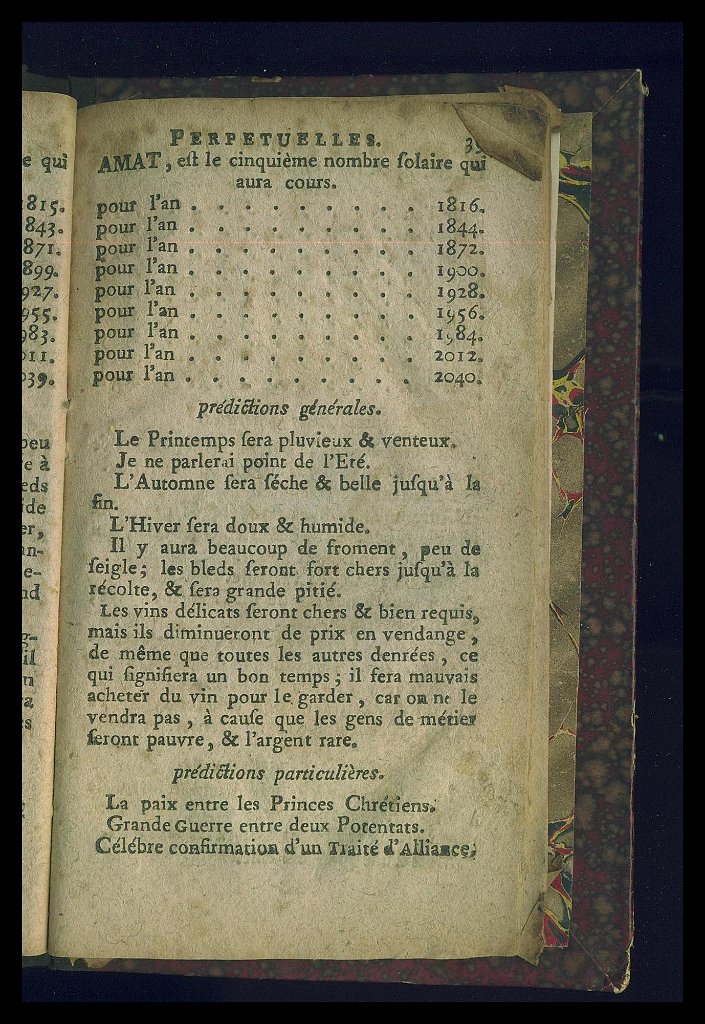 PERPETUELLES.
AMAT, eſt le cinquième nombre ſolaire qui
aura cours.
pour l'an . . . . . . . . . 1816.
pour l'an . . . . . . . . . 1844.
pour l'an . . . . . . . . . 1872.
pour l'an . . . . . . . . . 1900.
pour l'an . . . . . . . . . 1928.
pour l'an . . . . . . . . . 1956.
pour l'an . . . . . . . . . 1984.
pour l'an . . . . . . . . . 2012.
pour l'an . . . . . . . . . 2040.
prédictions générales.
Le Printemps ſera pluvieux & venteux.
Je ne parlerai point de l'Eté.
L'Automne ſera ſéche & belle juſqu'à la
fin.
L'Hiver ſera doux & humide.
Il y aura beaucoup de froment, peu de
ſeigle; les bleds ſeront fort chers juſqu'à la
récolte, & ſera grande pitié.
Les vins délicats ſeront chers & bien requis,
mais ils diminueront de prix en vendange,
de même que toutes les autres denrées, ce
qui ſignifiera un bon temps; il ſera mauvais
acheter du vin pour le garder, car on ne le
vendra pas, à cauſe que les gens de métier
ſeront pauvre, & l'argent rare.
prédictions particulières.
La paix entre les Princes Chrétiens.
Grande Guerre entre deux Potentats.
Célébre confirmation d'un Traité d'Alliance.